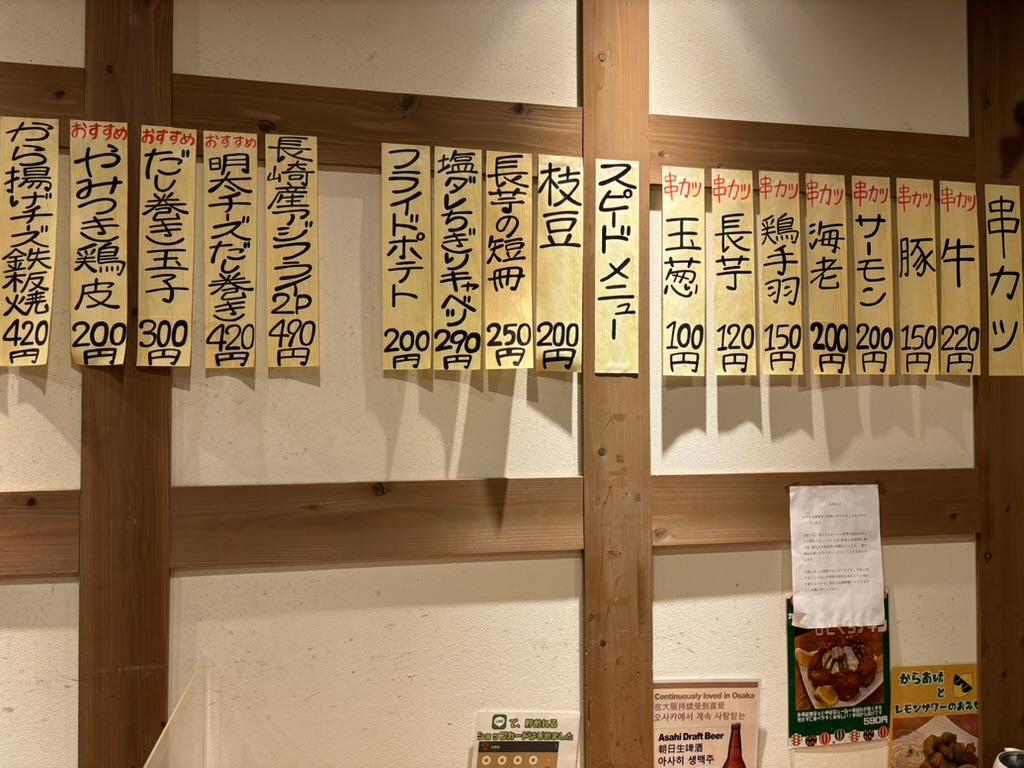 串カツ
串カツ 牛 220円
串カツ 豚 150円
串カツ サーモン 200円
串カツ 海老 200円
串カツ 鶏手羽 150円
串カツ 長芋 120円
串カツ 玉葱 100円
スピードメニュー
枝豆 200円
長芋の短冊 250円
塩ダレちぎりキャベツ 290円
フライドポテト 200円
長崎産アジフライ2P 490円
おすすめ 明太チーズだし巻き 420円
おすすめ だし巻き玉子 300円
おすすめ やみつき鶏皮 200円
から揚げチーズ鉄板焼 420円
で、貯めれる
ショップカードはじめました
Continuously loved in Osaka
在大阪持续受到喜爱
오사카에서 계속 사랑받는
Asahi Draft Beer
朝日生啤酒
아사히 생맥주
590円
からあげ
と
レモンサワーのお